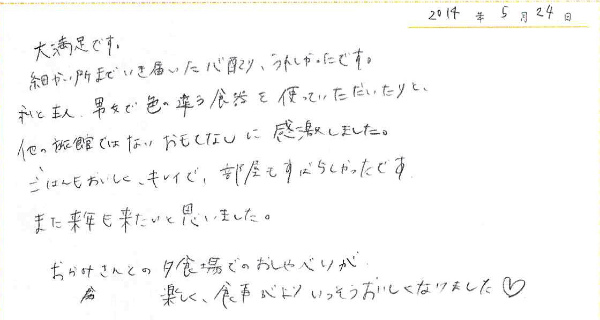 2014 年 5 月 24 日
大満足です。
細かい所までいき届いた心配り、うれしかったです。
私と主人、男女で色の違う食器を使っていただいたりと、
他の旅館ではないおもてなしに感激しました。
ごはんもおいしく、キレイで、部屋もすばらしかったです
また来年も来たいと思いました。
おかみさんとの夕食場でのおしゃべりが
楽しく、食事がよりいっそうおいしくなりました♡